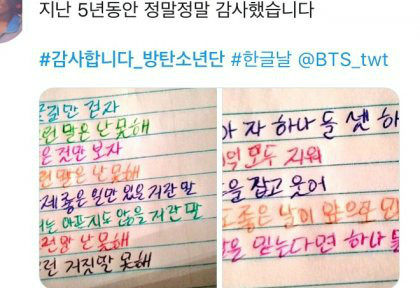 지난 5년동안 정말정말 감사했습니다
#감사합니다_방탄소년단 #한글날 @BTS_twt
길만 걷자
말은 난 못해
은 것만 보자
말은 난 못해
제 좋은 일만 있을 거란 말
는 아프지도 않을 거란 말
말 난 못해
런 거짓말 못해
자 하나 둘 셋 하
억 모두 지워
을 잡고 웃어
도 좋은 날이 앞으로
을 믿는다면 하나 둘